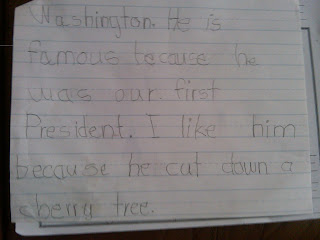 Washington. He is
famous because he
was our first
President. I like him
because he cut down a
cherry tree.